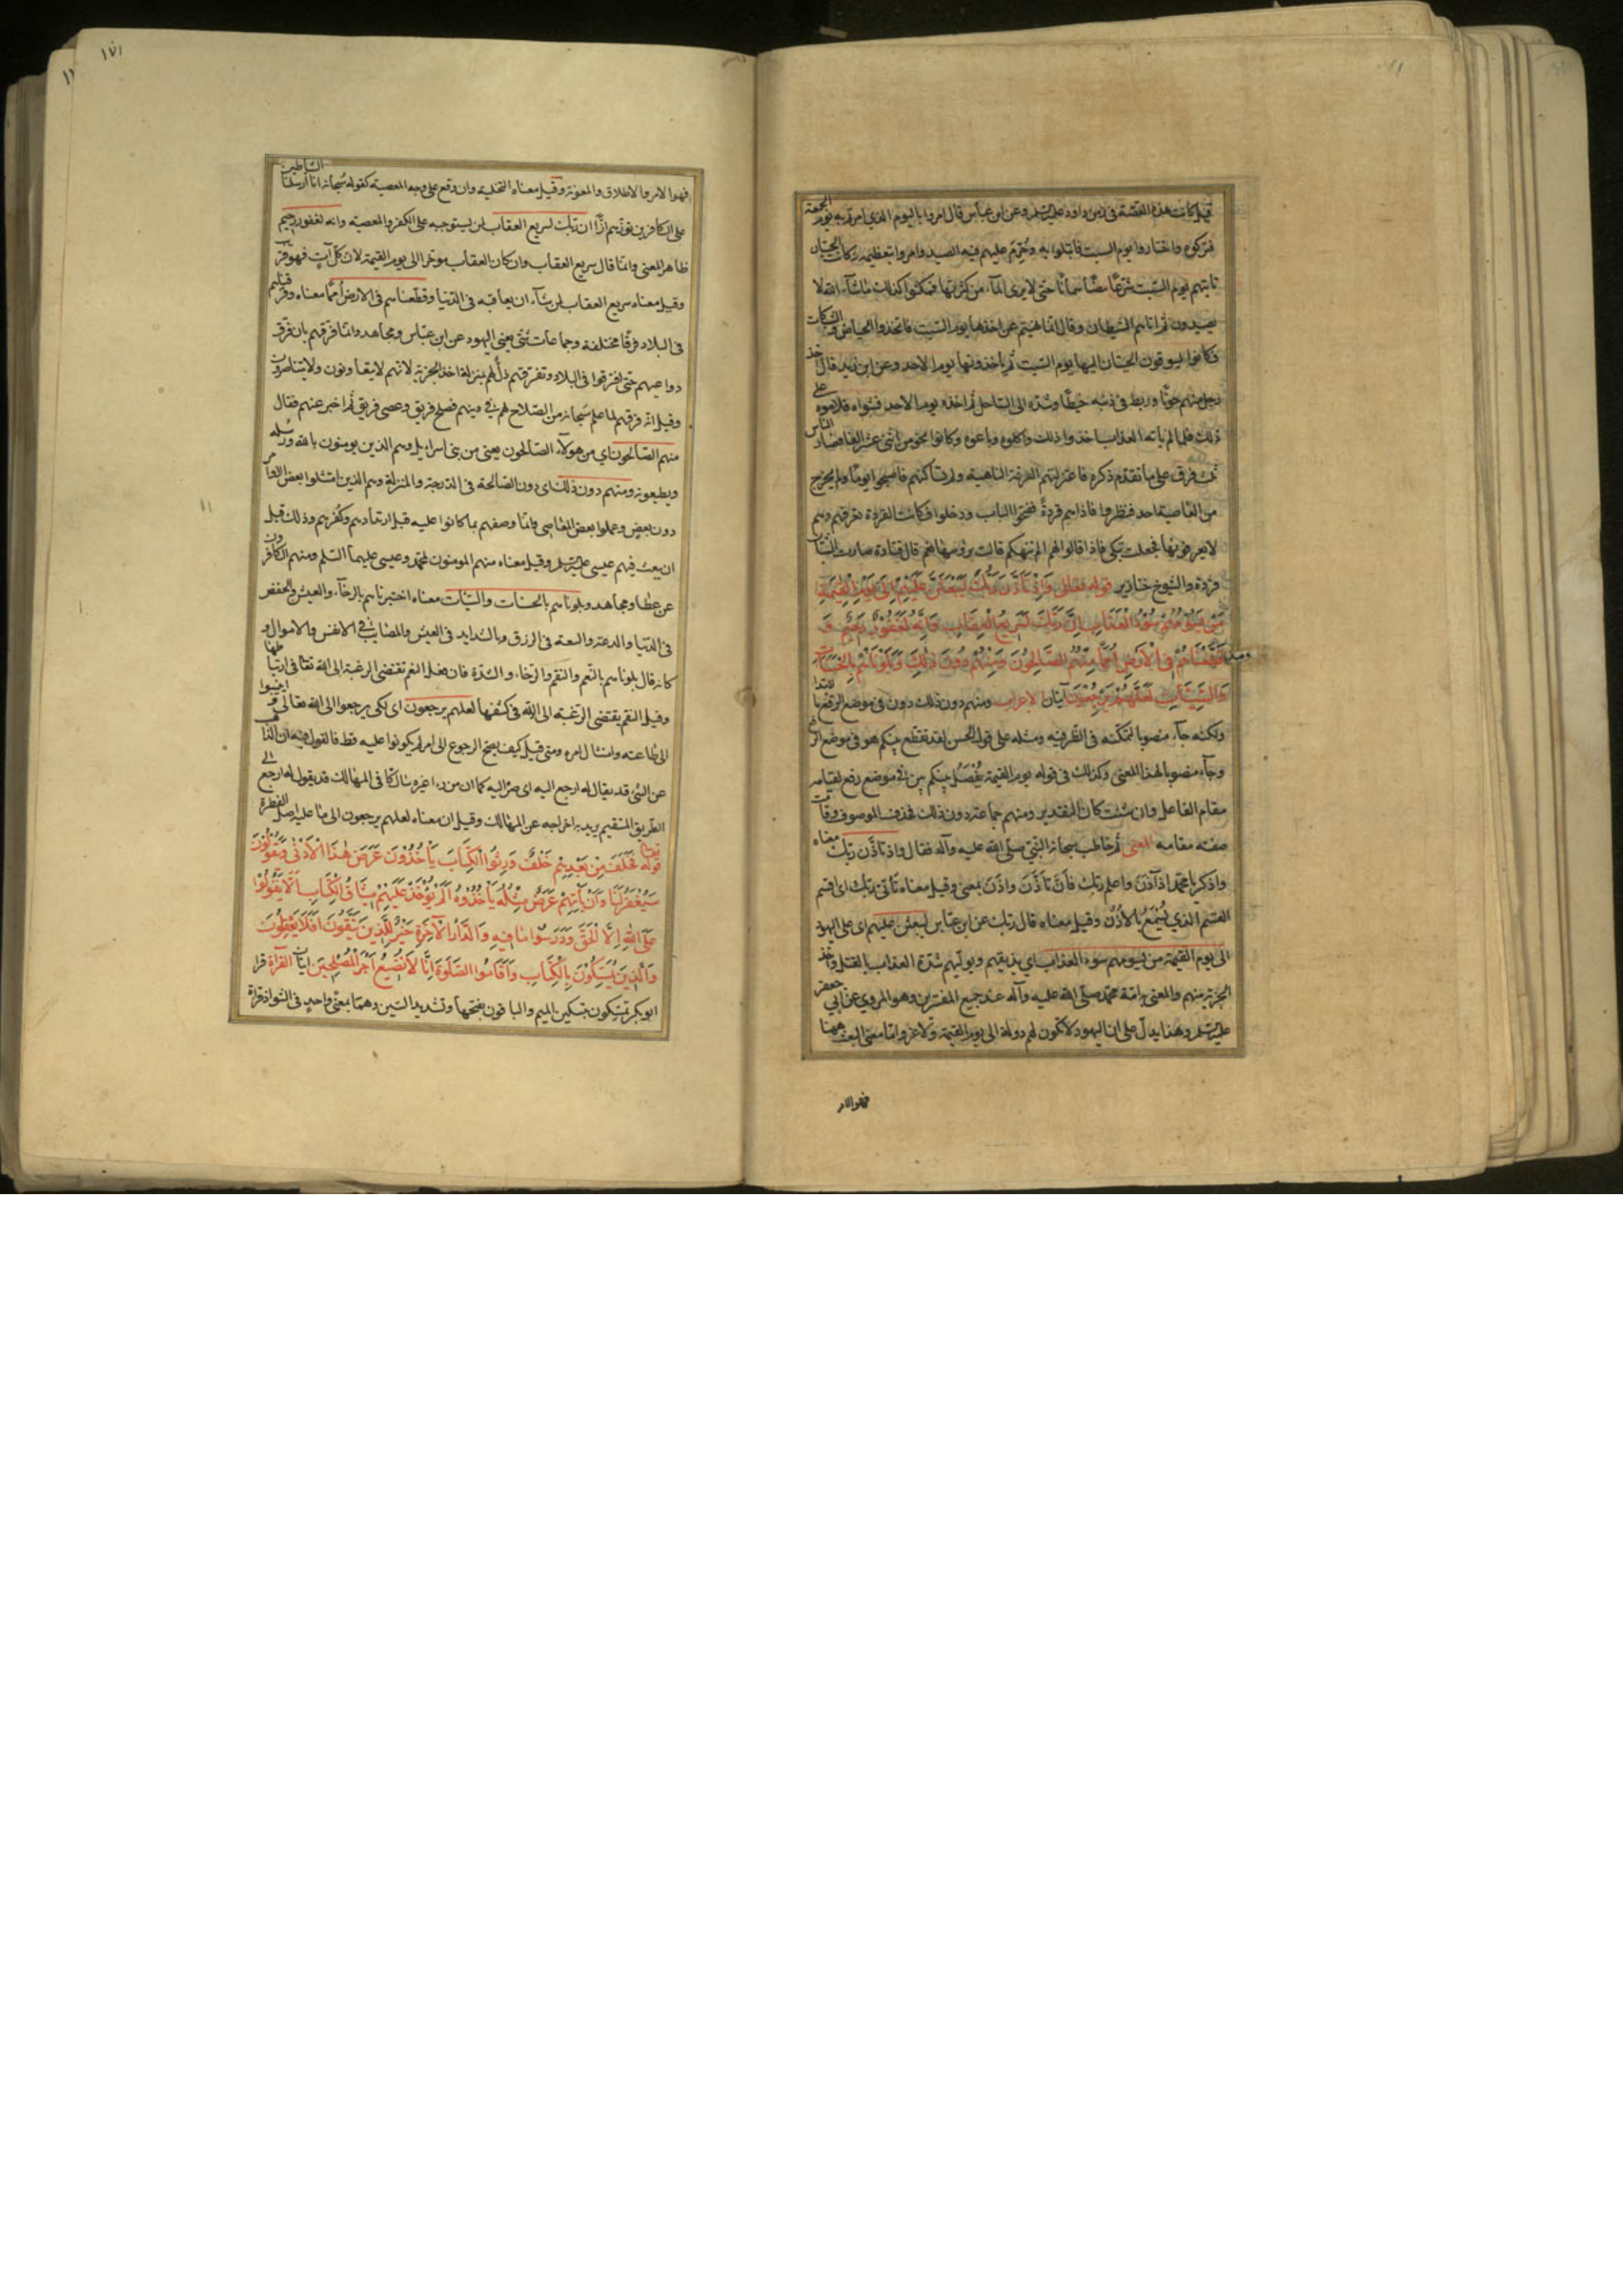 قيل كانت هذه القصة فى زمن داود عليه السلم وعن ابن عباس قال امروا باليوم الذي امرتم به يوم الجمعة
فتركوه واختاروا يوم السبت فابتلوا به وحُرّم عليهم فيه الصيد وامروا بتعظيمه فكانت الحيتان
تاتيهم يوم السّبت شرّعًا بيضًا سمانًا حتى لا يرى الماء من كثرتها فمكثوا كذلك ماشاء الله لا
يصيدون ثم اتاهم الشيطان وقال انما نهيتم عن اخذها يوم السّبت فاتخذوا الحياض والشبكات
فكانوا يسوقون الحيتان اليها يوم السّبت ثم ياخذونها يوم الاحد وعن ابن زيد قال اخذ
رجل منهم حوتًا وربط فى ذنبه خيطًا وشدّه الى الساحل ثم اخذه يوم الاحد فشواه فلاموه على
ذلك فلما لم ياته العذاب اخذوا ذلك واكلوه وباعوه وكانوا نحوًا من اثنى عشر الفا فصار الناس
ثلث فرق على ما تقدم ذكره فاعتزلتهم الفرقة الناهية ولم تساكنهم فاصبحوا يومًا ولم يخرج
من العاصية احد فنظروا فاذا هم قردةً ففتحوا الباب ودخلوا فكانت القردة تعرفهم وهم
لا يعرفونها فجعلت تبكى فاذا قالوا لهم الم ننهكم قالت برؤسها نعم قال قتادة صارت الشبان
قردة والشيوخ خنازير قوله تعالى وَاِذْ تَاَذَّنَ رَبُّكَ لَيَبْعَثَنَّ عَلَيْهِمْ اِلٰى يَوْمِ الْقِيٰمَةِ
مَنْ يَسُومُهُمْ سُوءَ الْعَذَابِ اِنَّ رَبَّكَ لَسَرِيعُ الْعِقَابِ وَاِنَّهُ لَغَفُورٌ رَحِيمٌ وَ
قَطَّعْنَاهُمْ فِى الْاَرْضِ اُمَمًا مِنْهُمُ الصَّالِحُونَ وَمِنْهُمْ دُونَ ذٰلِكَ وَبَلَوْنَاهُمْ بِالْحَسَنَاتِ
وَالسَّيِّئَاتِ لَعَلَّهُمْ يَرْجِعُونَ آيتان الاعراب ومنهم دون ذلك دون فى موضع الرفع بالابتداء
ولكنه جاء منصوبا لتمكنه فى الظرفية ومثله على قول الحسن لقد تقطع بينكم هو فى موضع الرفع
وجاء منصوبا لهذا المعنى وكذلك فى قوله يوم القيمة يُفصَلُ بينكم بين فى موضع رفع لقيامه
مقام الفاعل وان شئت كان التقدير ومنهم جماعة دون ذلك فحذف الموصوف وقامت
صفته مقامه المعنى ثم خاطب سبحانه النبي صلى الله عليه وآله فقال واذ تأذّن ربك معناه
واذكر يا محمد اذ آذن واعلم ربك فانّ تأذّن واذّن بمعنى وقيل معناه تألّى ربك اى اقسم
القسم الذي يُسْمَعُ بالاُذُن وقيل معناه قال ربك عن ابن عباس ليبعثن عليهم اى على اليهود
الى يوم القيمة من يسومهم سوء العذاب اي يذيقهم ويوليهم شدّة العذاب بالقتل واخذ
الجزية منهم والمعنى به امّة محمد صلى الله عليه وآله عند جميع المفسّرين وهو المروي عن ابي جعفر
عليه السلم وهذا يدلّ على ان اليهود لا تكون لهم دولة الى يوم القيمة ولا عز وامّا معنى البعث ههنا
فهو الامر
١٧١
فهو الامر والاطلاق والمعونة وقيل معناه التخلية وان وقع على وجه المعصية كقوله سُبحانه انا ارسلنا الشياطين
على الكافرين تؤزّهم ازًّا ان ربك لسريع العقاب لمن يستوجبه على الكفر والمعصية وانه لغفور رحيم
ظاهر المعنى وانما قال سريع العقاب وان كان العقاب موخّرا الى يوم القيمة لان كل آتٍ فهو قريب
وقيل معناه سريع العقاب لمن شاء ان يعاقبه فى الدّنيا وقطّعناهم فى الارض اُممًا معناه وفرّقناهم
فى البلاد فرقًا مختلفة وجماعات شتّى يعنى اليهود عن ابن عبّاس ومجاهد وانما فرّقهم بان فرّق
دواعيهم حتى تفرّقوا فى البلاد وتفرّقهم ذلّ لهم بمنزلة اخذ الجزية لانهم لا يتعاونون ولا يتناصرون
وقيل انه فرّقهم لما علم سُبحانه من الصّلاح لهم فى دينهم فصلح فريق وعصى فريق ثم اخبر عنهم فقال
منهم الصّالحون اي من هؤلاء الصّالحون يعنى من بنى اسرايل وهم الذين يومنون بالله ورسله
ويطيعونه ومنهم دون ذلك اى دون الصّالحة فى الدّرجة والمنزلة وهم الذين امتثلوا بعض الاوامر
دون بعضٍ وعملوا بعض المعاصى وانما وصفهم بما كانوا عليه قبل ارتدادهم وكُفرهم وذلك قبل
ان يبعث فيهم عيسى عليه السلم وقيل معناه منهم المومنون بمحمّد وعيسى عليهما السّلم ومنهم الكافرون
عن عطا ومجاهد وبلوناهم بالحسنات والسيّات معناه اختبرناهم بالرخآء والعيش والخفض
فى الدّنيا والدعة والسعة فى الرزق وبالشدايد فى العيش والمصايب فى الانفس والاموال و
كانه قال بلوناهم بالنّعم والنقم والرخاء والشدّة فان فعل النعم تقتضى الرغبة الى الله تعا فى ارتباطها
وفعل النقم يقتضى الرّغبة الى الله فى كشفها لعلهم يرجعون اى لكى يرجعوا الى الله تعالى وينيبوا
الى طاعته وامتثال امره ومتى قيل كيف يصح الرجوع الى امر لم يكونوا عليه قط فالقول فيه ان الذاهب
عن الشى قد يقال له ارجع اليه اى صرْ اليه كما ان من رءا غيره سالكًا فى المهالك قد يقول له ارجع الى
الطريق المستقيم يريد به اخراجه عن المهالك وقيل ان معناه لعلهم يرجعون الى ما عليه اصل الفطرة
قوله تعالى فَخَلَفَ مِنْ بَعْدِهِمْ خَلْفٌ وَرِثُوا الْكِتَابَ يَأْخُذُونَ عَرَضَ هٰذَا الْاَدْنٰى وَيَقُولُونَ
سَيُغْفَرُ لَنَا وَاِنْ يَأْتِهِمْ عَرَضٌ مِثْلُهُ يَأْخُذُوهُ اَلَمْ يُؤْخَذْ عَلَيْهِمْ مِيثَاقُ الْكِتَابِ اَنْ لَا يَقُولُوا
عَلَى اللهِ اِلَّا الْحَقَّ وَدَرَسُوا مَا فِيهِ وَالدَّارُ الْآخِرَةُ خَيْرٌ لِلَّذِينَ يَتَّقُونَ اَفَلَا يَعْقِلُونَ
وَالَّذِينَ يُمَسِّكُونَ بِالْكِتَابِ وَاَقَامُوا الصَّلٰوةَ اِنَّا لَا نُضِيعُ اَجْرَ الْمُصْلِحِينَ ايتان القرآة قرا
ابو بكر يمسكون بتسكين الميم والباقون بفتحها وتشديد السّين وهما بمعنًى واحدٍ فى الشواذ قراة